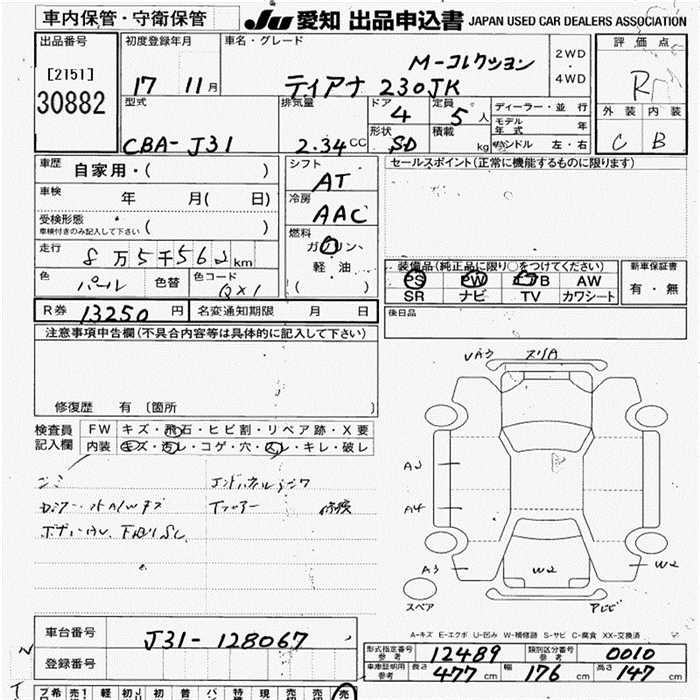 車内保管・守衛保管
JU 愛知 出品申込書 JAPAN USED CAR DEALERS ASSOCIATION
出品番号
[2151]
30882
初度登録年月
17 11月
車名・グレード
M-コレクション
ティアナ 230JK
2WD
・
4WD
評価点
R
外装 内装
C B
型式
CBA-J31
排気量
2.34cc
ドア
4
定員
5人
形状
SD
積載
kg
ディーラー・並行
モデル年式 年
ハンドル 左・右
車歴
自家用・( )
車検
年 月( 日)
受検形態
車検付きのみ記入して下さい ( )
走行
8万5千562km
色
パール
色替
色コード
QX1
シフト
AT
冷房
AAC
燃料
ガソリン、
軽油
( )
セールスポイント(正常に機能するものに限ります)
装備品(純正品に限り○をつけてください)
PS PW AB AW
SR ナビ TV カワシート
新車保証書
有・無
後日品
R券 13250 円
名変通知期限 月 日
注意事項申告欄(不具合内容等は具体的に記入して下さい)
修復歴 有 〔箇所 〕
検査員
記入欄
FW キズ・飛石・ヒビ割・リペア跡・X要
内装 キズ・汚レ・コゲ・穴・スレ・キレ・破レ
A3
A4
A3
W2
W2
スペア
A-キズ E-エクボ U-凹み W-補修跡 S-サビ C-腐食 XX-交換済
車台番号
J31-128067
登録番号
形式指定番号
参考
12489
類別区分番号
参考
0010
車庫証明用
参考
長さ 477cm
幅 176cm
高さ 147cm